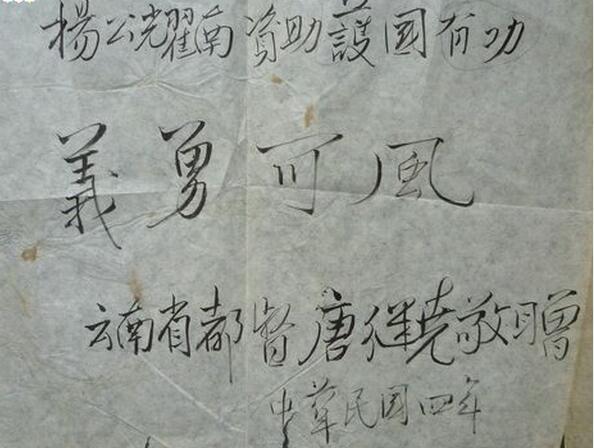 楊公耀南資助護國有功
義勇可風
云南省都督唐継尧敬贈
中華民国四年